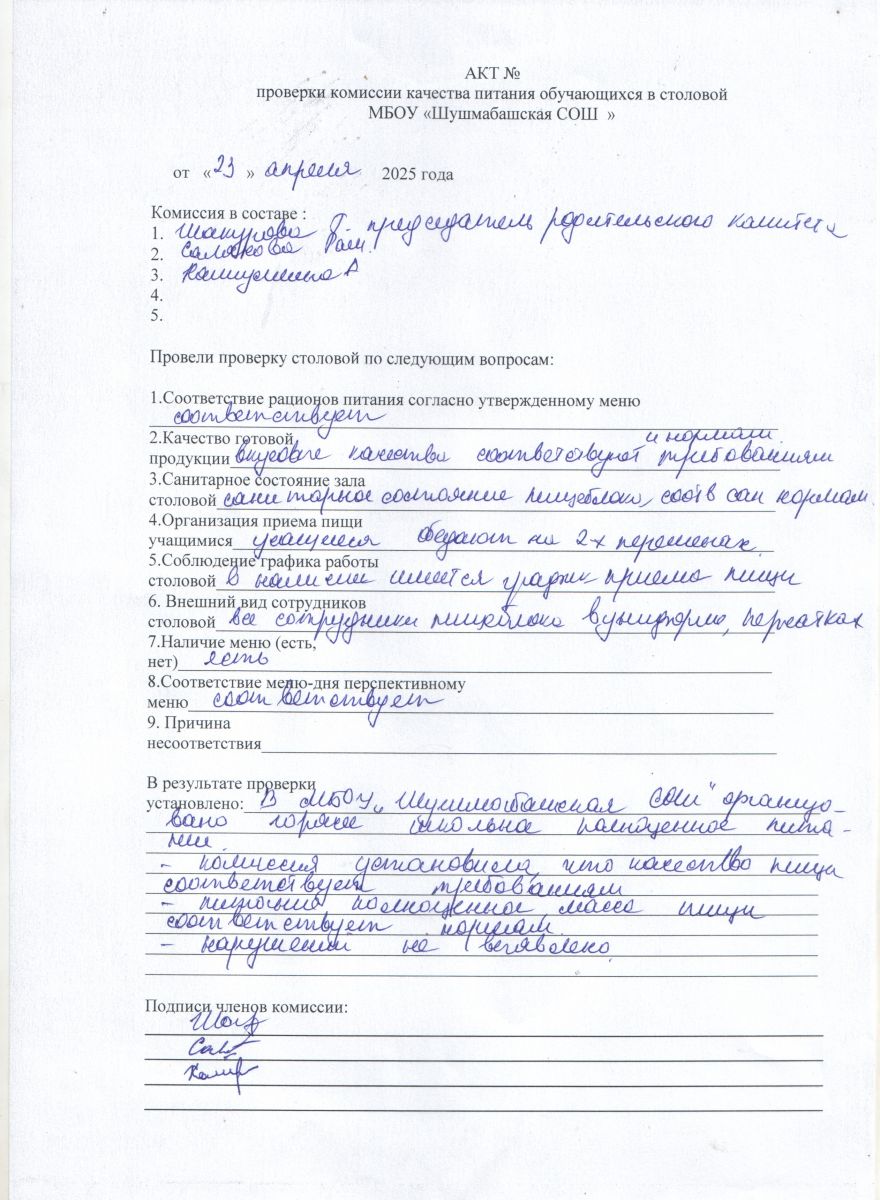 АКТ №
проверки комиссии качества питания обучающихся в столовой
МБОУ «Шушмабашская СОШ »
от «23 » апреля 2025 года
Комиссия в составе :
1. Шакурова Г. председатель родительского комитета
2. Салахова
3.
4.
5.
Провели проверку столовой по следующим вопросам:
1.Соответствие рационов питания согласно утвержденному меню
соответствует
2.Качество готовой и нормам.
продукции вкусовые качества соответствуют требованиям
3.Санитарное состояние зала
столовой санитарное состояние пищеблока, соотв сан нормам.
4.Организация приема пищи
учащимися учащиеся обедают на 2-х переменах.
5.Соблюдение графика работы
столовой в наличии имеется график приема пищи
6. Внешний вид сотрудников
столовой все сотрудники пищеблока в униформе, перчатках
7.Наличие меню (есть,
нет) есть
8.Соответствие меню-дня перспективному
меню соответствует
9. Причина
несоответствия
В результате проверки
установлено: В МБОУ „Шушмабашская СОШ" организо-
вано горячее школьное полноценное пита-
ние.
- комиссия установила, что качество пищи
соответствует требованиям
- питание полноценное, масса пищи
соответствует нормам.
- нарушений не выявлено.
Подписи членов комиссии: